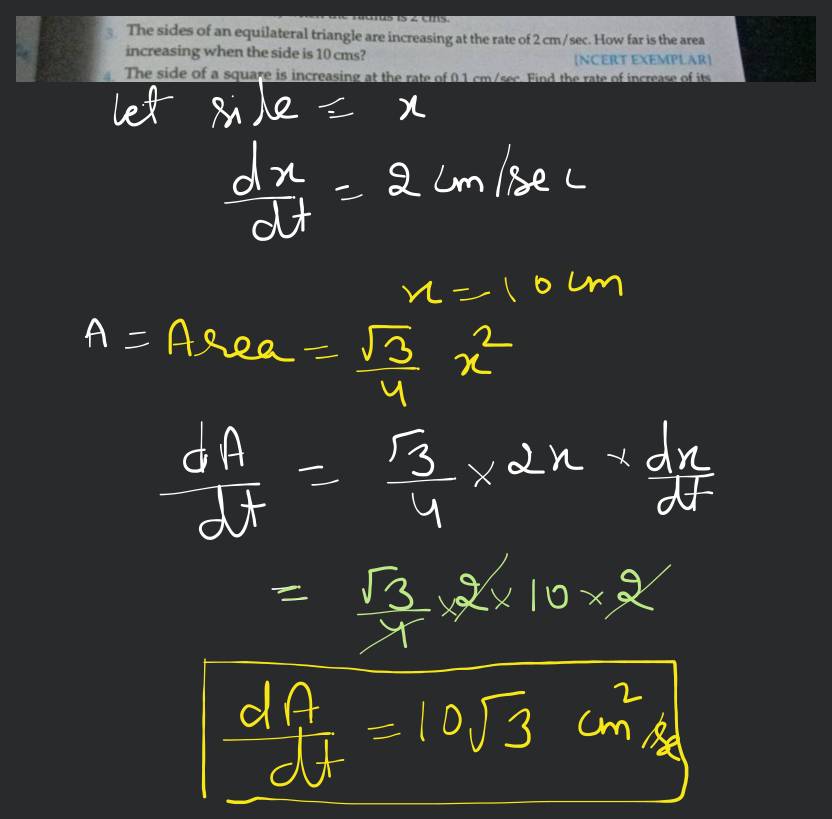 3. The sides of an equilateral triangle are increasing at the rate of 2 cm/sec. How far is the area
increasing when the side is 10 cms? [NCERT EXEMPLAR]
4. The side of a square is increasing at the rate of 0.1 cm/sec. Find the rate of increase of its
let side = x
dx/dt = 2 cm/sec
x = 10 cm
A = Area = √3/4 x²
dA/dt = √3/4 × 2x × dx/dt
= √3/4 × 2 × 10 × 2
dA/dt = 10√3 cm²/se